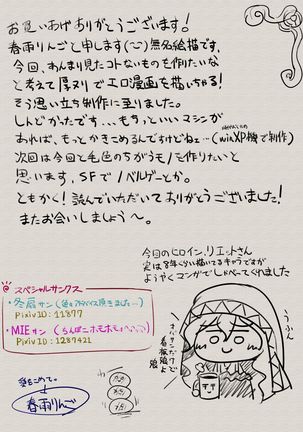 お買いあげありがとうございます!
春雨りんごと申します(〜)無名絵描です、
今回、あんまり見たコトないものを作りたいな
と考えて厚ヌリでエロ漫画を描いちゃる!
そう思い立ち制作に至りました。
しんどかったです、、、もちっといいマシンが
あれば、もっとかきこめるんですけどねェ…(winXP機で制作)
次回は今回と毛色のちがうモノを作りたいと
思います、SFでノベルゲーとか。
ともかく!読んでいただいてありがとうございました!
またお会いしましょう〜。
今回のヒロイン、リエットさん
実は8年くらい描いてるキャラですが
ようやくマンガでしゃべってくれました
スペシャルサンクス
・冬扇サン(色々アドバイス頂きました…)
Pixiv ID : 11877
・MIEサン
Pixiv ID : 1287421
オバサンだけど
看板娘よ
うふん
春雨りんご